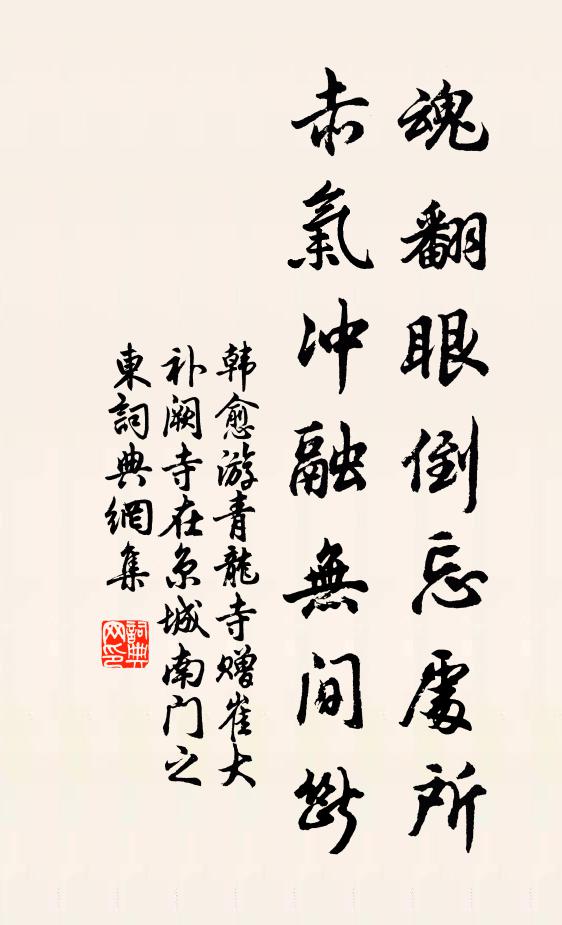 魂翻眼倒忘處所
赤氣冲融無間斷
韩愈游青龍寺赠崔大
补阙寺在京城南门之
東詞典網集
詞典
网印